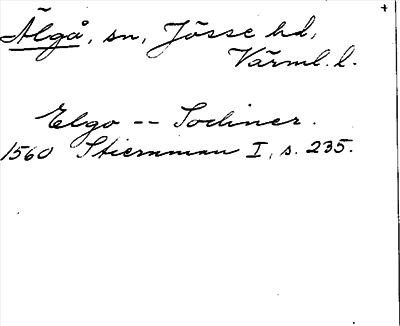 Älgå, sn, Jösse hd,
Värml. l.
Elgo -- Sochner.
1560 Stiernman I, s. 235.